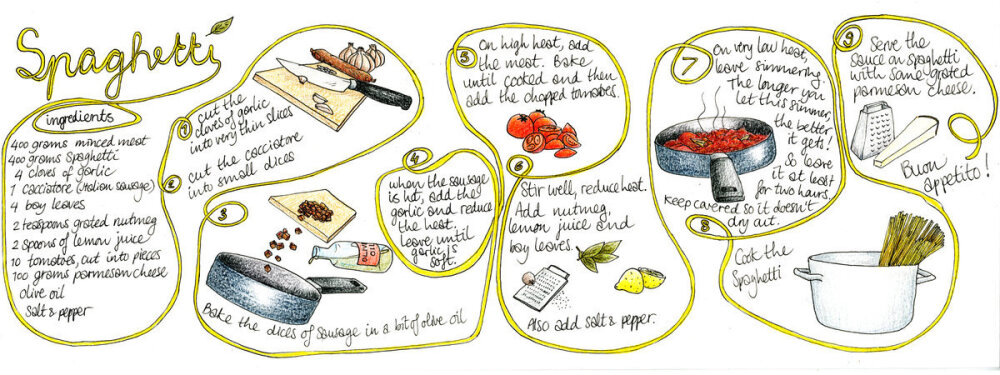 Spaghetti
ingredients
400 grams minced meat
400 grams Spaghetti
4 cloves of garlic
1 cacciatore (Italian sausage)
4 bay leaves
2 teaspoons grated nutmeg
2 spoons of lemon juice
10 tomatoes, cut into pieces
100 grams parmesan cheese
olive oil
salt & pepper
1
cut the
cloves of garlic
into very thin slices
2
cut the cacciatore
into small dices
3
OLIVE
OIL
Bake the dices of sausage in a bit of olive oil
4
when the sausage
is hot, add the
garlic and reduce
the heat.
Leave until
garlic is
soft.
5
On high heat, add
the meat. Bake
until cooked and then
add the chopped tomatoes.
6
Stir well, reduce heat.
Add nutmeg,
lemon juice and
bay leaves.
Also add salt & pepper.
7
On very low heat,
leave simmering.
The longer you
let this simmer,
the better,
it gets!
So leave
it at least
for two hours.
Keep covered so it doesn't
dry out.
8
Cook the
Spaghetti
9
Serve the
sauce on spaghetti
with some grated
parmesan cheese.
Buon
appetito!